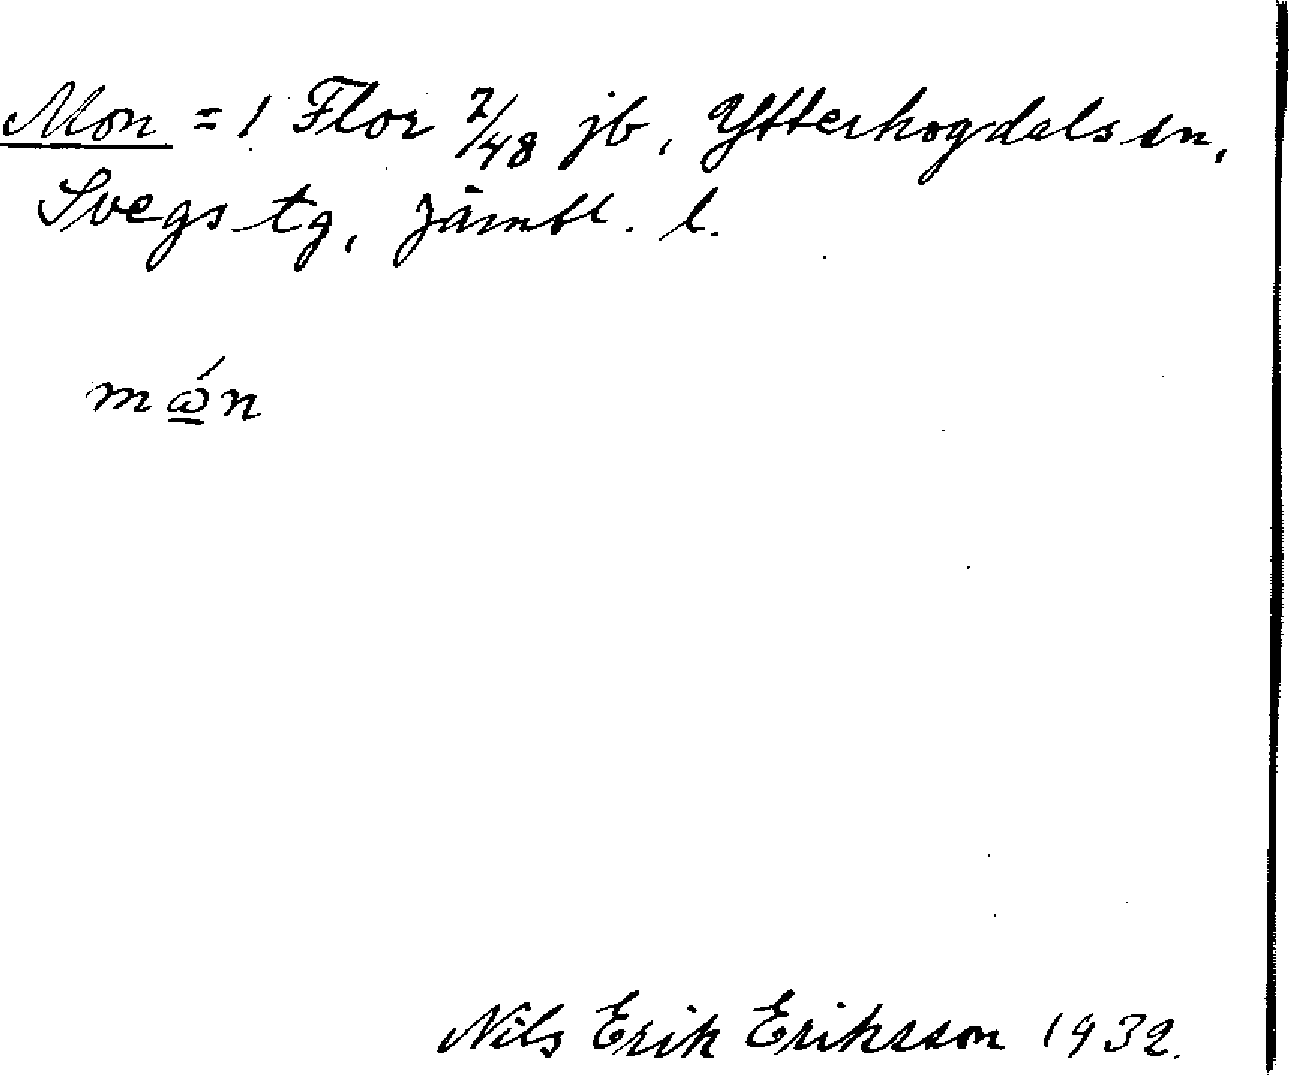 Mon = 1 Flor 2/48 jb, Ytterhogdals sn,
Svegs tg, Jämtl. l.
mώ̲n
Nils Erik Eriksson 1932.